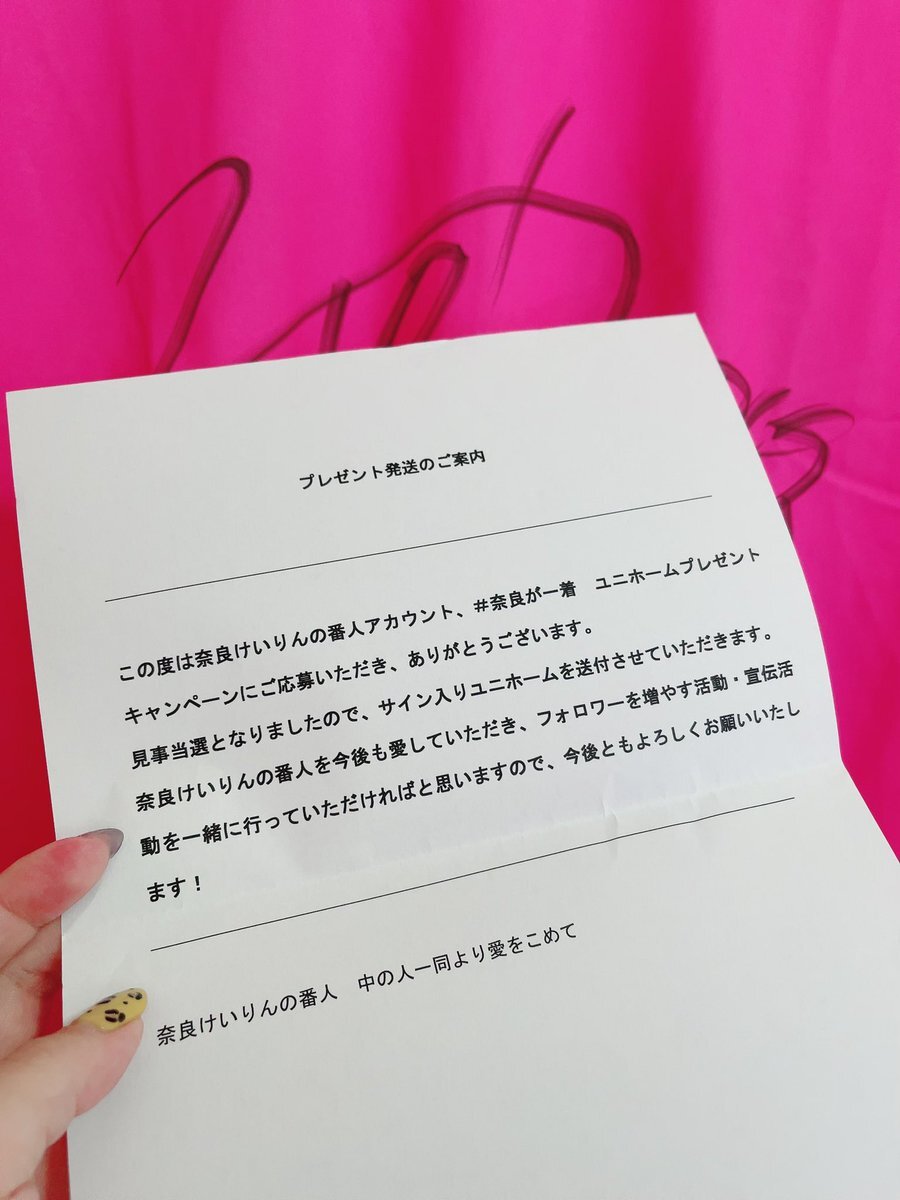 プレゼント発送のご案内
この度は奈良けいりんの番人アカウント、＃奈良が一着　ユニホームプレゼント
キャンペーンにご応募いただき、ありがとうございます。
見事当選となりましたので、サイン入りユニホームを送付させていただきます。
奈良けいりんの番人を今後も愛していただき、フォロワーを増やす活動・宣伝活
動を一緒に行っていただければと思いますので、今後ともよろしくお願いいたし
ます！
奈良けいりんの番人　中の人一同より愛をこめて